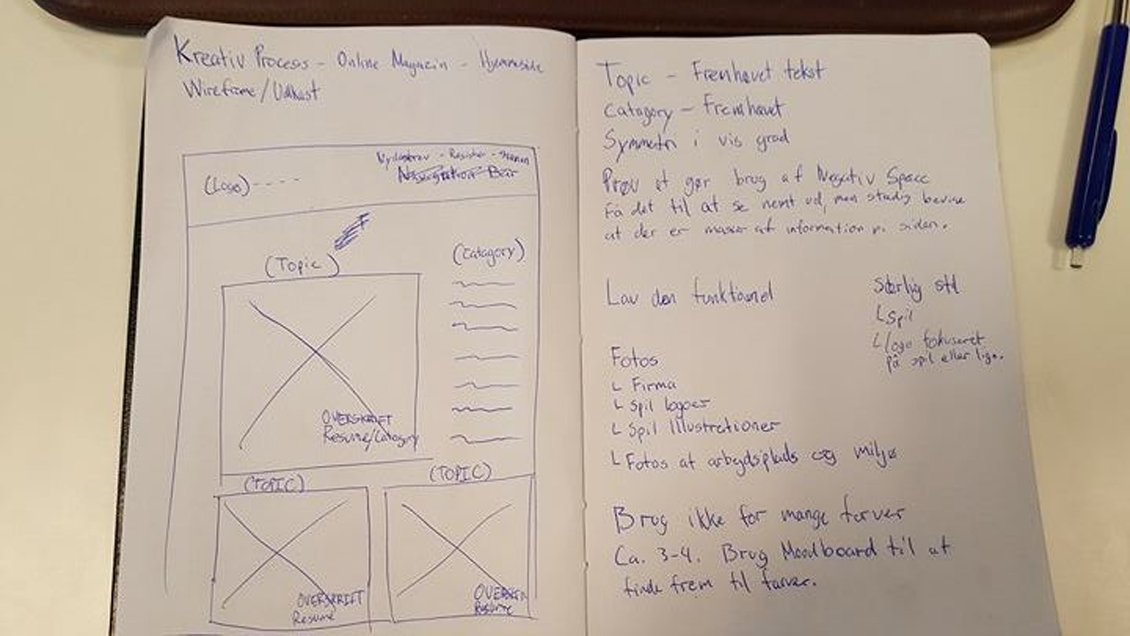 Kreativ Process - Online Magazin - Hjemmeside
Wireframe/Udkast
Nyhedsbrev - Register -
Navigation Bar
(Logo)----
(Topic)
(Catagory)
OVERSKRIFT
Resume/Catagory
(TOPIC)
(TOPIC)
OVERSKRIFT
Resume
OVERSKRIFT
Resume
Topic - Fremhævet tekst
Catagory - Fremhævet
Symmetri i vis grad
Prøv at gør brug af Negativ Space
Få det til at se nemt ud, men stadig bevise
at der er masser af information på siden.
Lav den funktionel
Særlig stil
└ Spil
└ logo fokuseret
på spil eller lign.
Fotos
└ Firma
└ Spil logoer
└ Spil Illustrationer
└ Fotos af arbejdsplads og miljø
Brug ikke for mange farver
Ca. 3-4. Brug Moodboard til at
finde frem til farver.